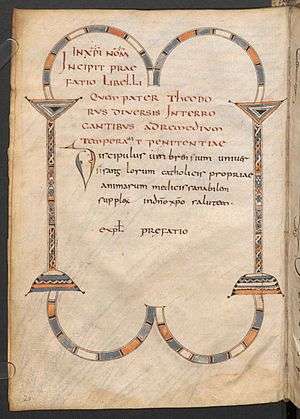 IN XPI NOM
INCIPIT PRAE
FATIO LIBELLI
QUEM PATER THEODO
RUS DIVERSIS INTERRO
GANTIBUS AD REMEDIUM
TEMPERAUIT PENITENTIAE
Discipulus umbrensium uniuer
sis anglorum catholicis propriae
animarum medicis sanabilem
supplex in dno xpo salutem.
expl prefatio